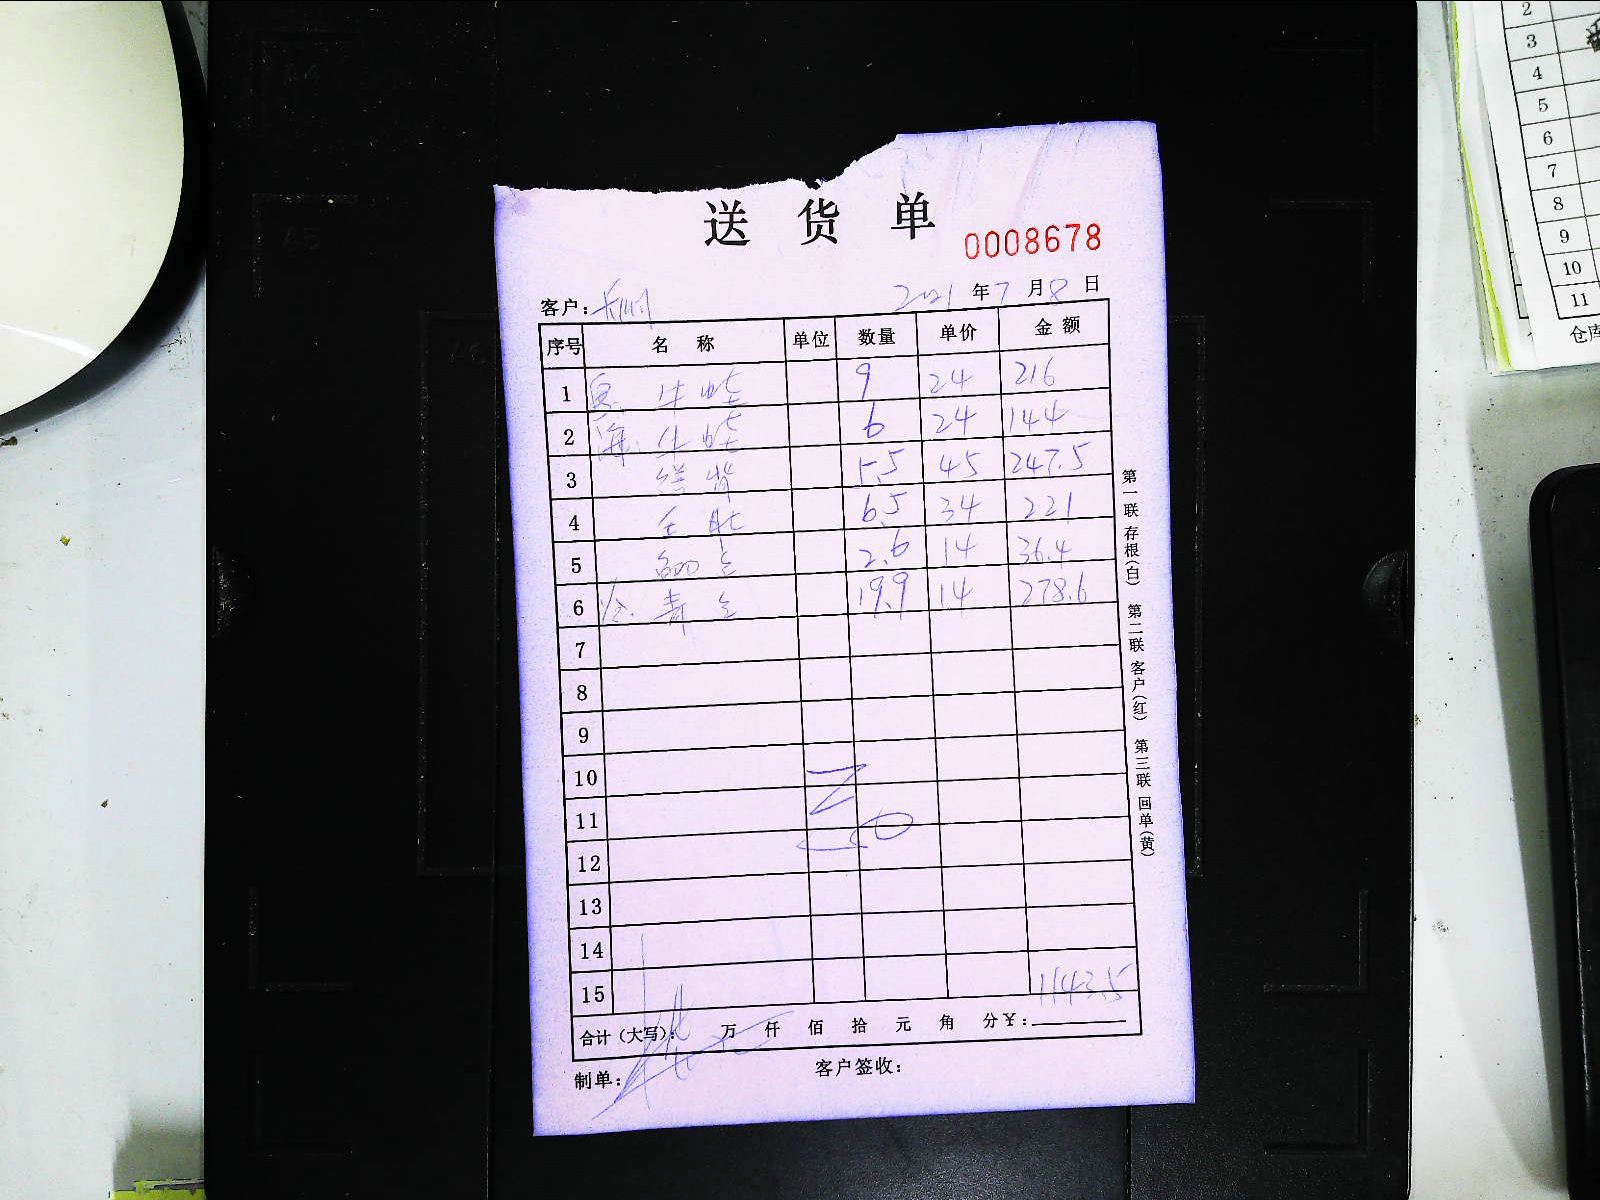 送 货 单
0008678
客户: 2021 年 7 月 8 日
序号 名 称 单位 数量 单价 金 额
1 牛蛙 9 24 216
2 牛蛙 6 24 144
3 5.5 45 247.5
4 6.5 34 221
5 2.6 14 36.4
6 19.9 14 278.6
7
8
9
10
11
12
13
14
15 1143.5
合计(大写): 万 仟 佰 拾 元 角 分 ¥:
制单: 客户签收:
第一联 存根(白) 第二联 客户(红) 第三联 回单(黄)
2
3
4
5
6
7
8
9
10
11
仓库